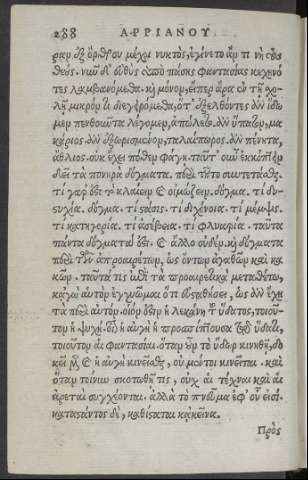 288 ΑΡΡΙΑΝΟΥ
ραν ἐξ ὄρθρου μέχρι νυκτὸς, ἐγένετο ἄν τι νὴ τοὺς
θεούς. νῦν δ' εὐθὺς ὑπὸ πάσης φαντασίας κεχηνό
τες λαμβανόμεθα. καὶ μόνον, εἴπερ ἄρα ἐν τῇ σχο-
λῇ μικρόν τι διεγειρόμεθα, ὅτ' ἐξελθόντες ἂν ἴδω
μεν πενθοῦντα λέγομεν, ἀπώλετο. ἂν ὕπατον, μα
κάριος. ἂν ἐξωρισμένον, ταλαίπωρος. ἂν πένητα,
ἄθλιος. οὐκ ἔχει πόθεν φάγῃ. ταῦτ' οὖν ἐκκόπτειν
δεῖ τὰ πονηρὰ δόγματα. περὶ τοῦτο συντετάσθαι.
τί γάρ ἐστι τὸ κλαίειν καὶ οἰμώζειν. δόγμα. τί δυ-
στυχία. δόγμα. τί στάσις. τί διχόνοια. τί μέμψις.
τί κατηγορία. τί ἀσέβεια. τί φλυαρία. ταῦτα
πάντα δόγματά ἐστι. καὶ ἄλλο οὐδὲν, καὶ δόγματα
περὶ τῶν ἀπροαιρέτων, ὡς ὄντων ἀγαθῶν καὶ κα
κῶν. ταῦτά τις ἐπὶ τὰ προαιρετικὰ μεταθέτω,
κἀγὼ αὐτὸν ἐγγυῶμαι ὅτι εὐσταθήσει, ὡς ἂν ἔχῃ
τὰ περὶ αὐτόν. οἷόν ἐστιν ἡ λεκάνη τοῦ ὕδατος, τοιοῦ-
τον ἡ ψυχή. οἷον ἡ αὐγὴ ἡ προσπίπτουσα τῷ ὕδατι,
τοιοῦτον αἱ φαντασίαι. ὅταν οὖν τὸ ὕδωρ κινηθῇ, δο
κεῖ μὲν καὶ ἡ αὐγὴ κινεῖσθαι, οὐ μέντοι κινεῖται. καὶ
ὅταν τοίνυν σκοτωθῇ τις, οὐχ αἱ τέχναι καὶ αἱ
ἀρεταὶ συγχέονται. ἀλλὰ τὸ πνεῦμα ἐφ' οὗ εἰσί.
καταστάντος δὲ, καθίσταται κἀκεῖνα.
Πρὸς